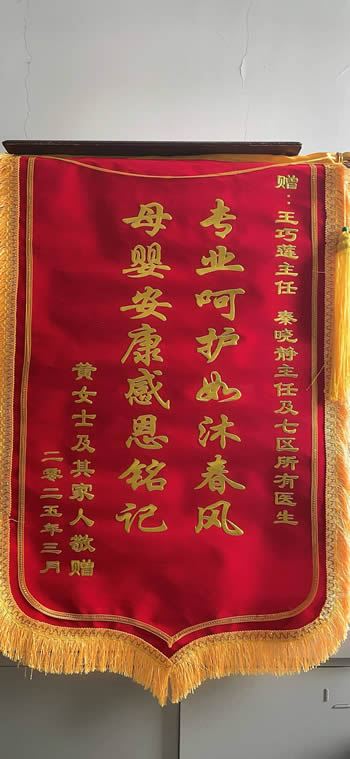 赠：王巧莲主任 秦晓静主任及七区所有医生
专业呵护如沐春风
母婴安康感恩铭记
黄女士及其家人敬赠
二零二五年三月